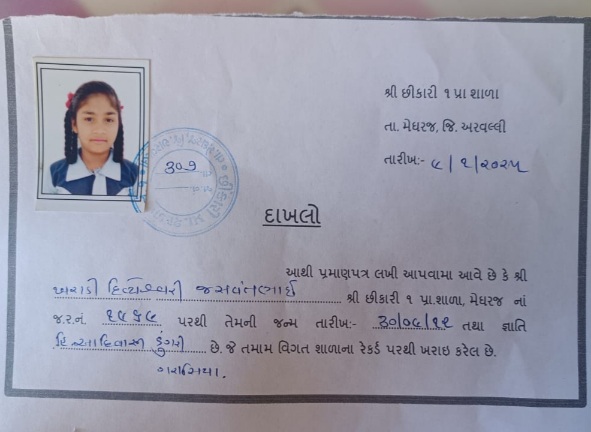 શ્રી છીકારી ૧ પ્રા.શાળા
તા. મેઘરજ, જિ. અરવલ્લી
તારીખ:- ૯/૧/૨૦૨૫
309
દાખલો
આથી પ્રમાણપત્ર લખી આપવામા આવે છે કે શ્રી
ખરાડી દિવ્યેશ્વરી જસવંતભાઇ શ્રી છીકારી ૧ પ્રા.શાળા, મેઘરજ નાં
જ.ર.નં. ૧૫૬૯ પરથી તેમની જન્મ તારીખ:- ૩૦/૦૯/૧૨ તથા જ્ઞાતિ
હિન્દુ આદિવાસી ડુંગરી છે. જે તમામ વિગત શાળાના રેકર્ડ પરથી ખરાઇ કરેલ છે.
ગરાસિયા.